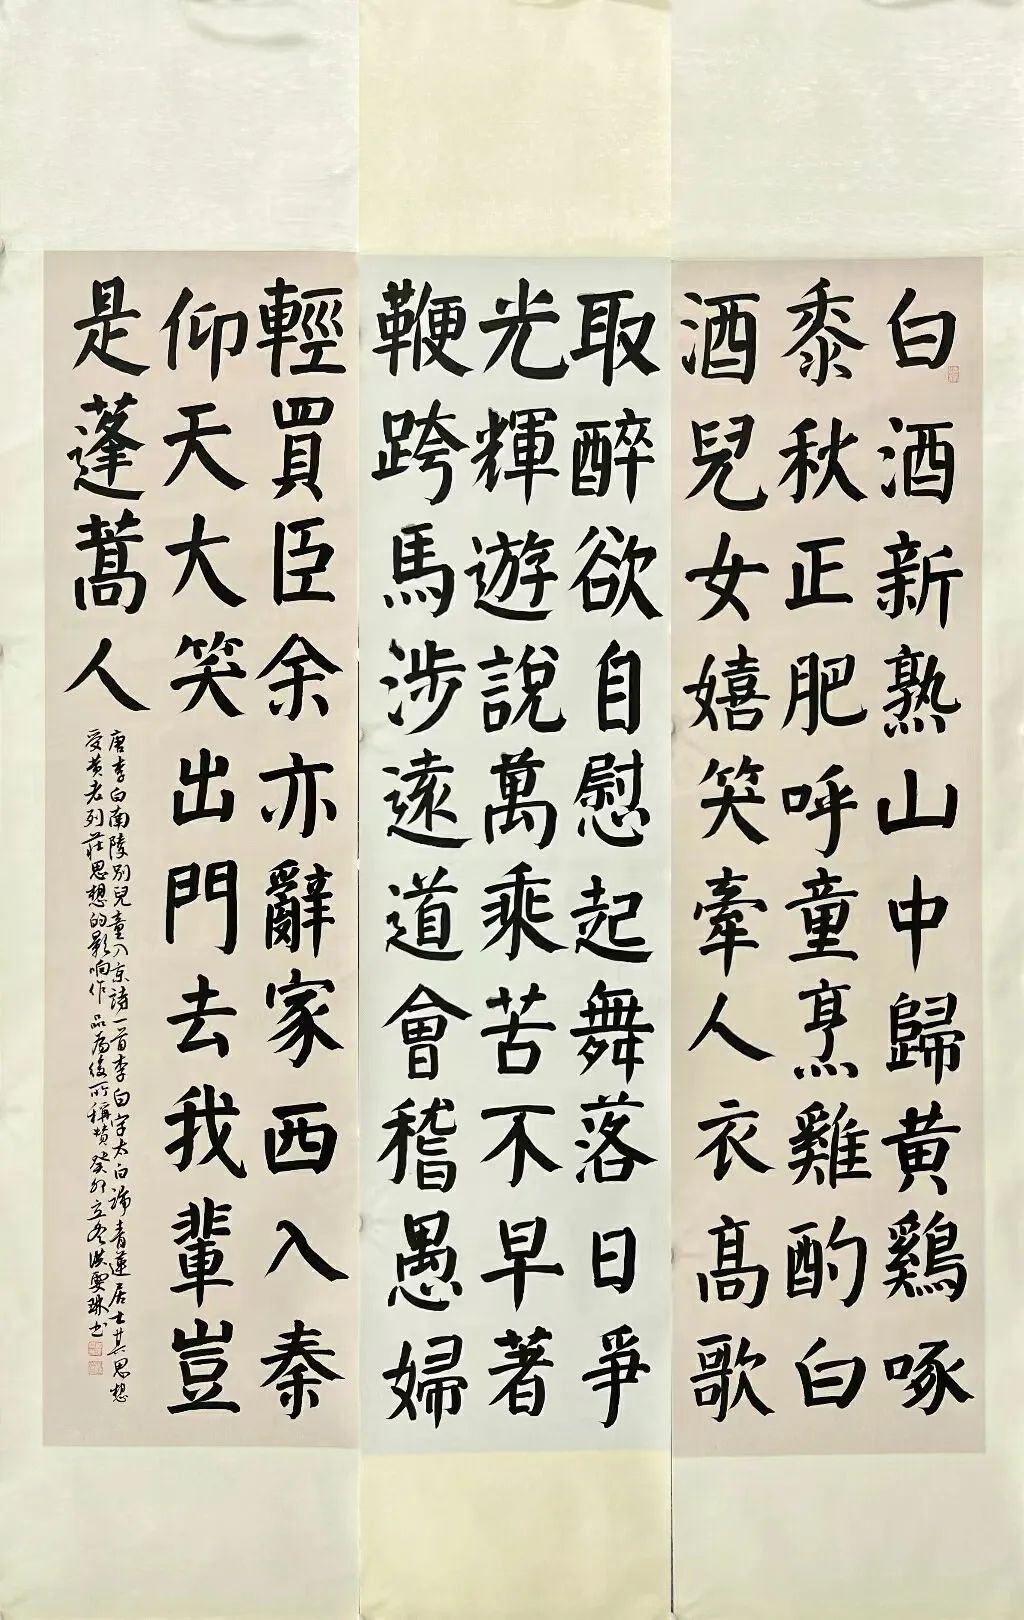 白酒新熟山中歸黄鷄啄
黍秋正肥呼童烹雞酌白
酒兒女嬉笑牽人衣高歌
取醉欲自慰起舞落日爭
光輝遊説萬乘苦不早著
鞭跨馬涉遠道會稽愚婦
輕買臣余亦辭家西入秦
仰天大笑出門去我輩豈
是蓬蒿人
唐李白南陵别兒童入京詩一首李白字太白号青蓮居士其思想
受黄老列莊思想的影响作品為後所稱贊癸卯立冬洪雯琳书